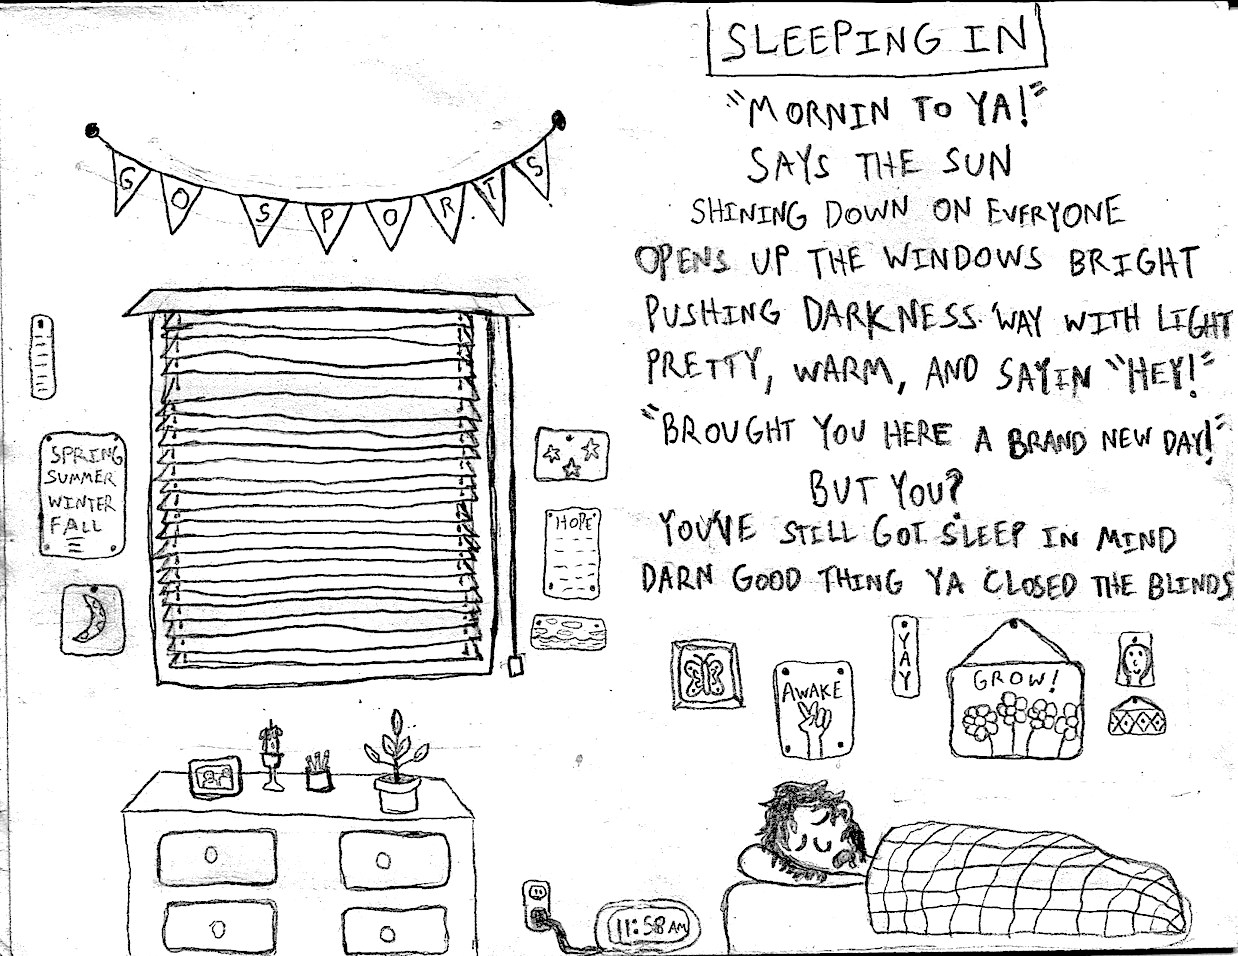 SLEEPING IN
"MORNIN TO YA!"
SAYS THE SUN
SHINING DOWN ON EVERYONE
OPENS UP THE WINDOWS BRIGHT
PUSHING DARKNESS 'WAY WITH LIGHT
PRETTY, WARM, AND SAYIN "HEY!"
"BROUGHT YOU HERE A BRAND NEW DAY!"
BUT YOU?
YOU'VE STILL GOT SLEEP IN MIND
DARN GOOD THING YA CLOSED THE BLINDS
GO SPORTS
SPRING
SUMMER
WINTER
FALL
HOPE
AWAKE
YAY
GROW!
11:58 AM